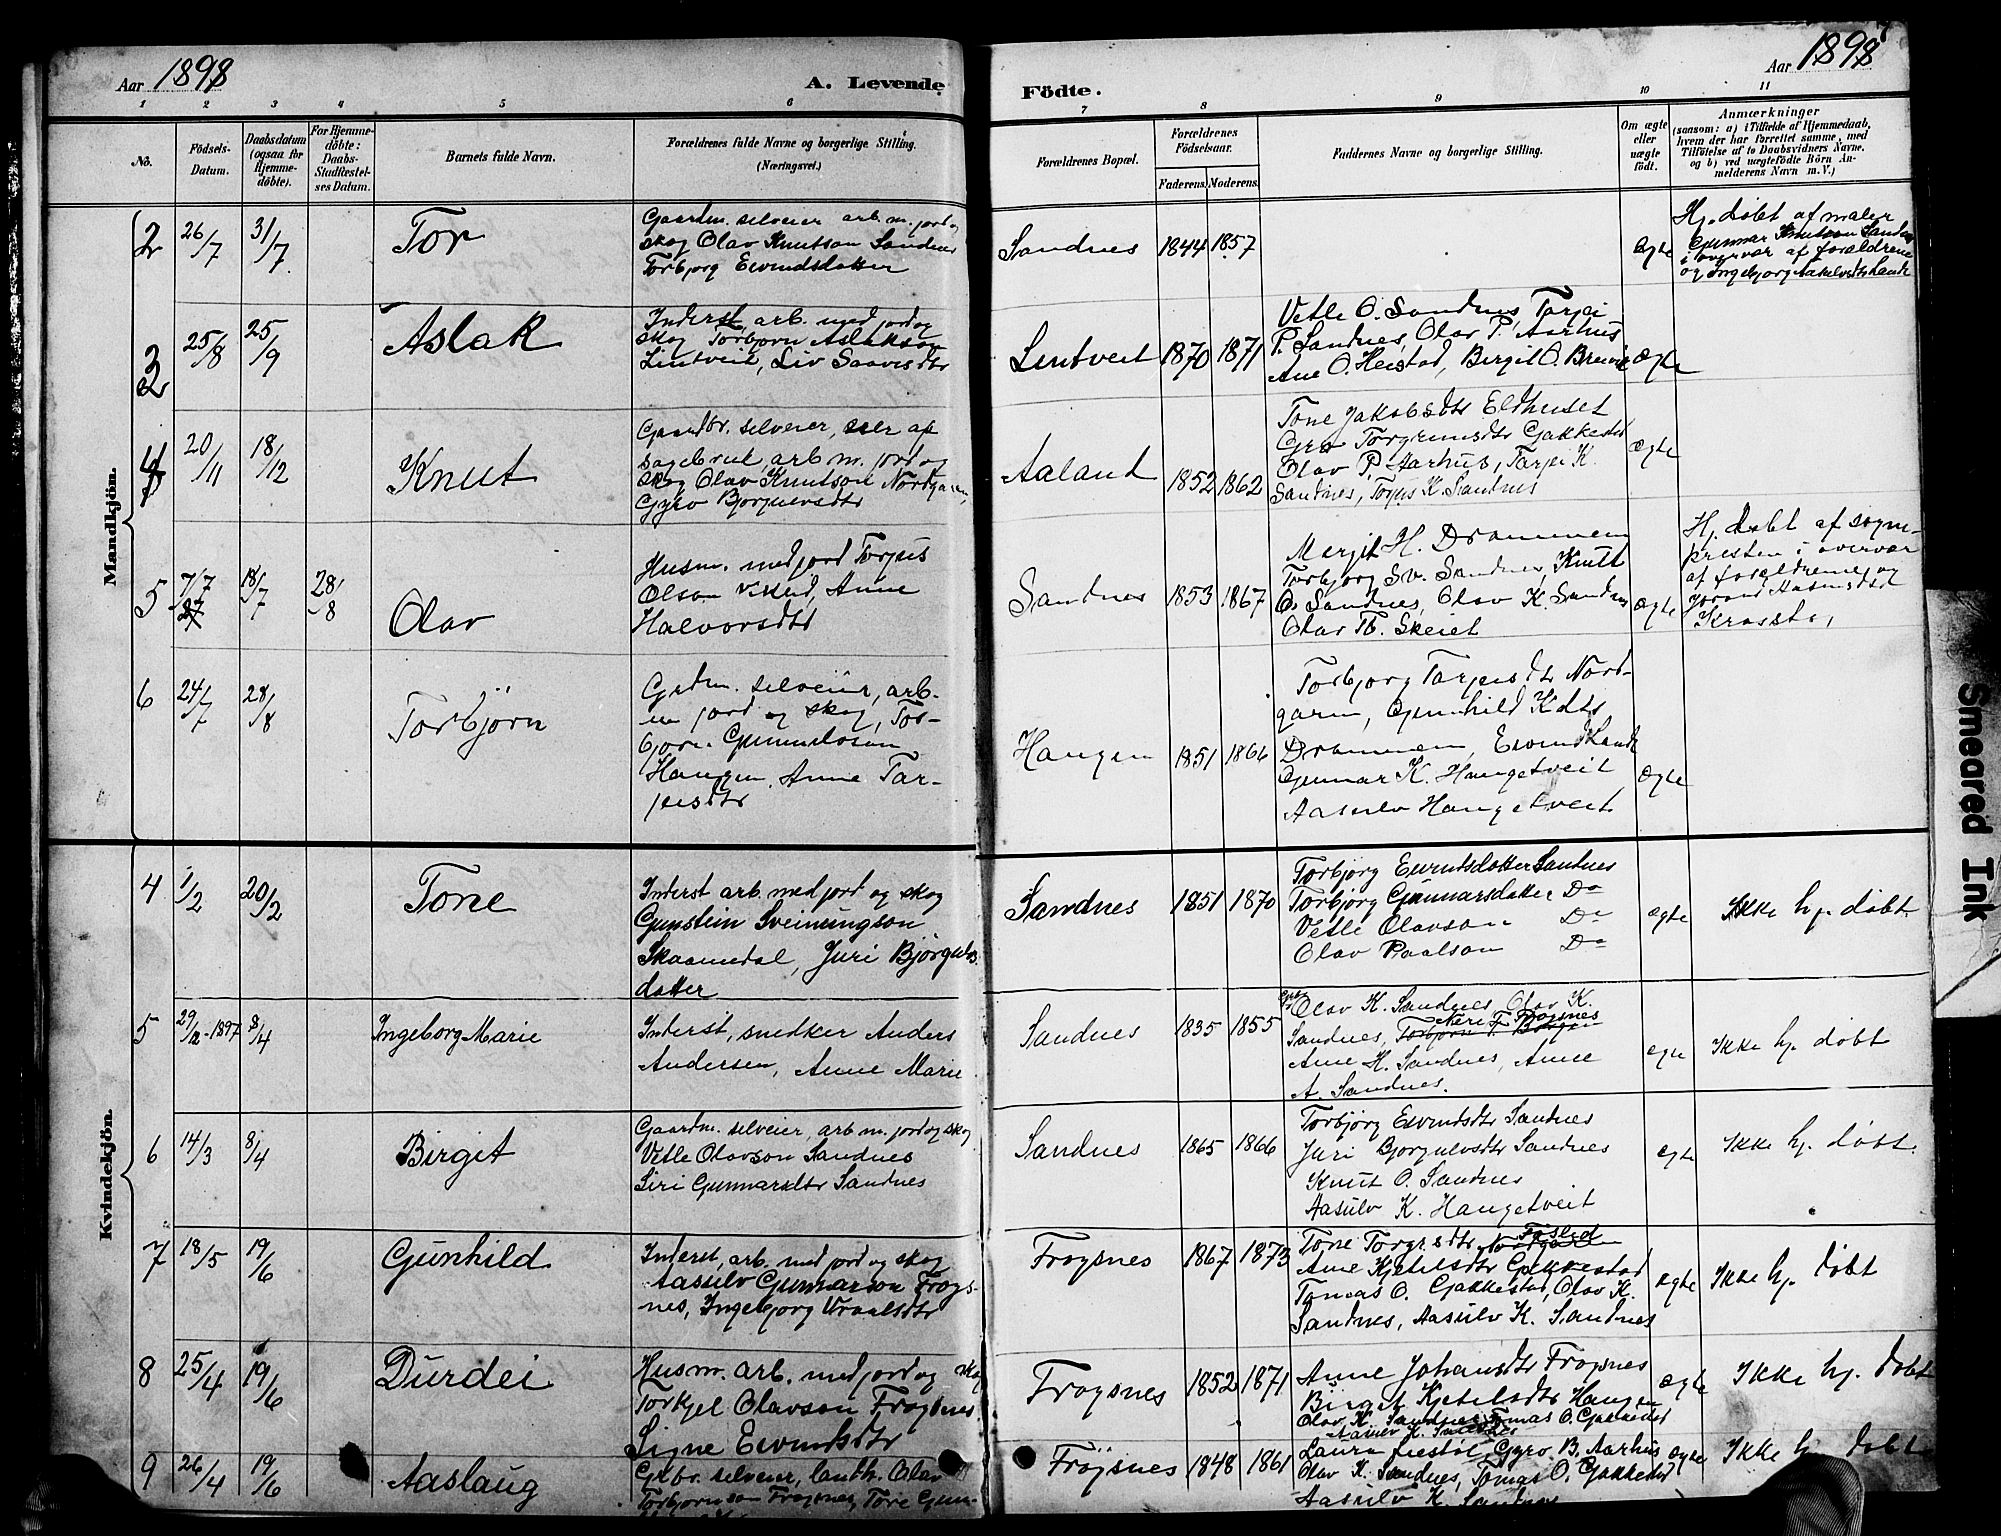 Aar 1898
A. Levende
Födte.
Aar 1898
1 2 3 4 5 6 7 8 9 10 11
No.
Födsels-
Datum.
Daabsdatum
(ogsaa for
Hjemme-
döbte).
For Hjemme-
döbte:
Daabs-
Stadfæstel-
ses Datum.
Barnets fulde Navn.
Forældrenes fulde Navne og borgerlige Stilling.
(Næringsvei.)
Forældrenes Bopæl.
Forældrenes
Födselsaar.
Faderens. Moderens.
Faddernes Navne og borgerlige Stilling.
Om ægte
eller
uægte
födt.
Anmærkninger
(saasom: a) i Tilfælde af Hjemmedaab,
hvem der har forrettet samme, med
Tilföielse af to Daabsvidners Navne.
og b) ved uægtefödte Börn An-
melderens Navn m. V.)
Mandkjön.
2 26/7 31/7 Tor
Gaardm. selveier arb. m. jord og
skog Olav Knutson Sandnes
Torbjorg Eivindsdatter
Sandnes 1844 1857
ægte
Hj. döbt af maler
Gunnar Knutson Sandnes
i overvær af forældrene
og Ingebjorg Aasulvsdtr Lande
3 25/8 25/9 Aslak
Inderst, arb. med jord og
skog Torbjorn Aslakson
Lintveit, Liv Saavesdtr
Lintveit 1870 1871
Vetle O. Sandnes, Tarjei
P. Sandnes, Olav P. Aarhus
Ane O. Heistad, Birgit O. Breivik
ægte
4 20/11 18/12 Knut
Gaardbr. selveier, eier af
sagebruk, arb. m. jord og
skog Olav Knutson Nordgaren,
Gyro Bjorgulvsdtr
Aaland 1852 1862
Tone Jakobsdtr Eldhuset
Gro Torgrimsdtr Gakkestad
Olav P. Aarhus, Tarjei K.
Sandnes, Torjus K. Sandnes
ægte
5 7/7 18/7 28/8 Olav
Husm. med jord Torjus
Olson Skeid, Anne
Halvorsdtr
Sandnes 1853 1867
Margit H. Drammen
Torbjorg Sv. Sandnes, Knut
O. Sandnes, Olav K. Sandnes
Olav Tb. Skeiet
ægte
Hj. döbt af sogne-
presten i overvær
af forældrene og
Jorand Aasmundsdtr
Krossto,
6 24/7 28/8 Torbjörn
Grdm. selveier, arb-
m jord og skog, Tor-
bjorn Gunnulvson
Haugen, Anne Tar-
jeisdtr
Haugen 1851 1864
Torbjorg Tarjeisdtr Nord-
garen, Gunhild Kdtr
Drammen, Eivind Lande
Gunnar K. Haugetveit
Aasulv Haugetveit
ægte
Kvindekjön.
4 1/2 20/2 Tone
Inderst arb. med jord og skog
Gunstein Sveinungson
Skaamedal, Juri Bjørgulvs-
datter
Sandnes 1851 1870
Torbjørg Eivindsdatter Sandnes
Torbjørg Gunnarsdatter Do
Vetle Olavson Do
Olav Paalson Do
ægte Ikke hj. döbt
5 29/12-1897 8/4 Ingeborg Marie
Inderst, snedker Anders
Andersen, Anne Marie
Sandnes 1835 1855
Olav K. Sandnes, Olav K.
Neri F. Frogsnes
Sandnes,
Anne H. Sandnes, Anne
A. Sandnes.
ægte Ikke hj. döbt
6 14/3 8/4 Birgit
Gaardm. selveier, arb m. jord og skog
Vetle Olavson Sandnes
Siri Gunnarsdtr Sandnes
Sandnes 1865 1866
Torbjörg Eivindsdtr Sandnes
Juri Bjorgulvsdtr Sandnes
Knut O. Sandnes
Aasulv K. Haugetveit
ægte Ikke hj. döbt.
7 18/5 19/6 Gunhild
Inderst, arb. med jord og skog
Aasulv Gunnarson Frogs-
nes, Ingebjorg Vraalsdtr
Frogsnes 1867 1873
Tone Torgrsdtr Nordgaren
Anne Kjetilsdtr Gakkestad
Tomas O. Gakkestad, Olav K.
Sandnes, Aasulv K. Sandnes
ægte Ikke hj. döbt
8 25/4 19/6 Durdei
Husm. arb. med jord og skog
Torkjel Olavson Frogsnes
Signe Eivindsdtr
Frogsnes 1852 1871
Anne Johansdtr Frogsnes
Birgit Kjetilsdtr Haugen
Olav K. Sandnes Tomas O. Gakkestad
Aasulv K. Sandnes
ægte Ikke hj. döbt
9 26/4 19/6 Aaslaug
Grbr. selveier, landh. Olav
Torbjornson Frogsnes, Tore Gun-
Frøjsnes 1848 1861
Laura Liestöl, Gyro B. Aarhus
Olav K. Sandnes, Tomas O. Gakkestad
Aasulv K. Sandnes
ægte Ikke hj. döbt
Smeared Ink